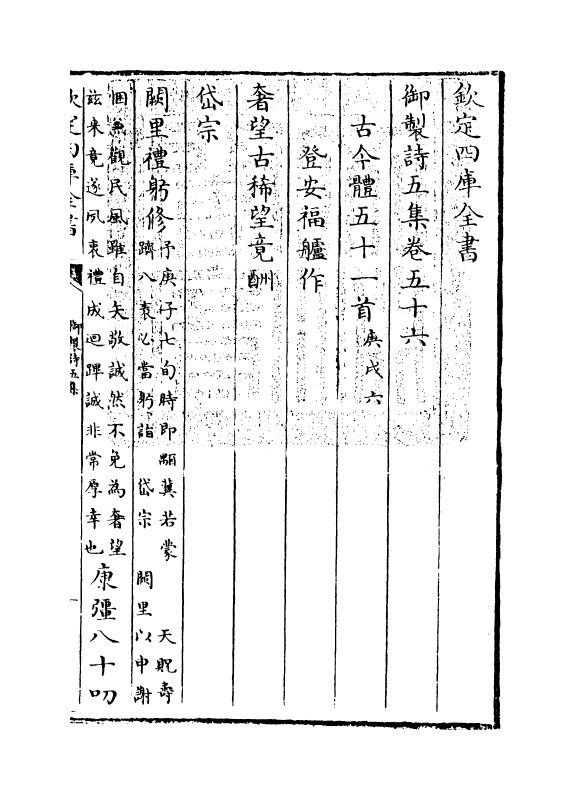 欽定四庫全書
御製詩五集卷五十六
古今體五十一首庚戌六
登安福艫作
奢望古稀望竟酬
岱宗
闕里禮躬修予庚子七旬時即顒冀若蒙 天貺壽
躋八袠必當躬詣 岱宗 闕里以申謝
悃兼觀民風雖自矢敬誠然不免為奢望
兹來竟遂夙衷禮成迴蹕誠非常厚幸也康彊八十叨
欽定四庫全書
御製詩五集